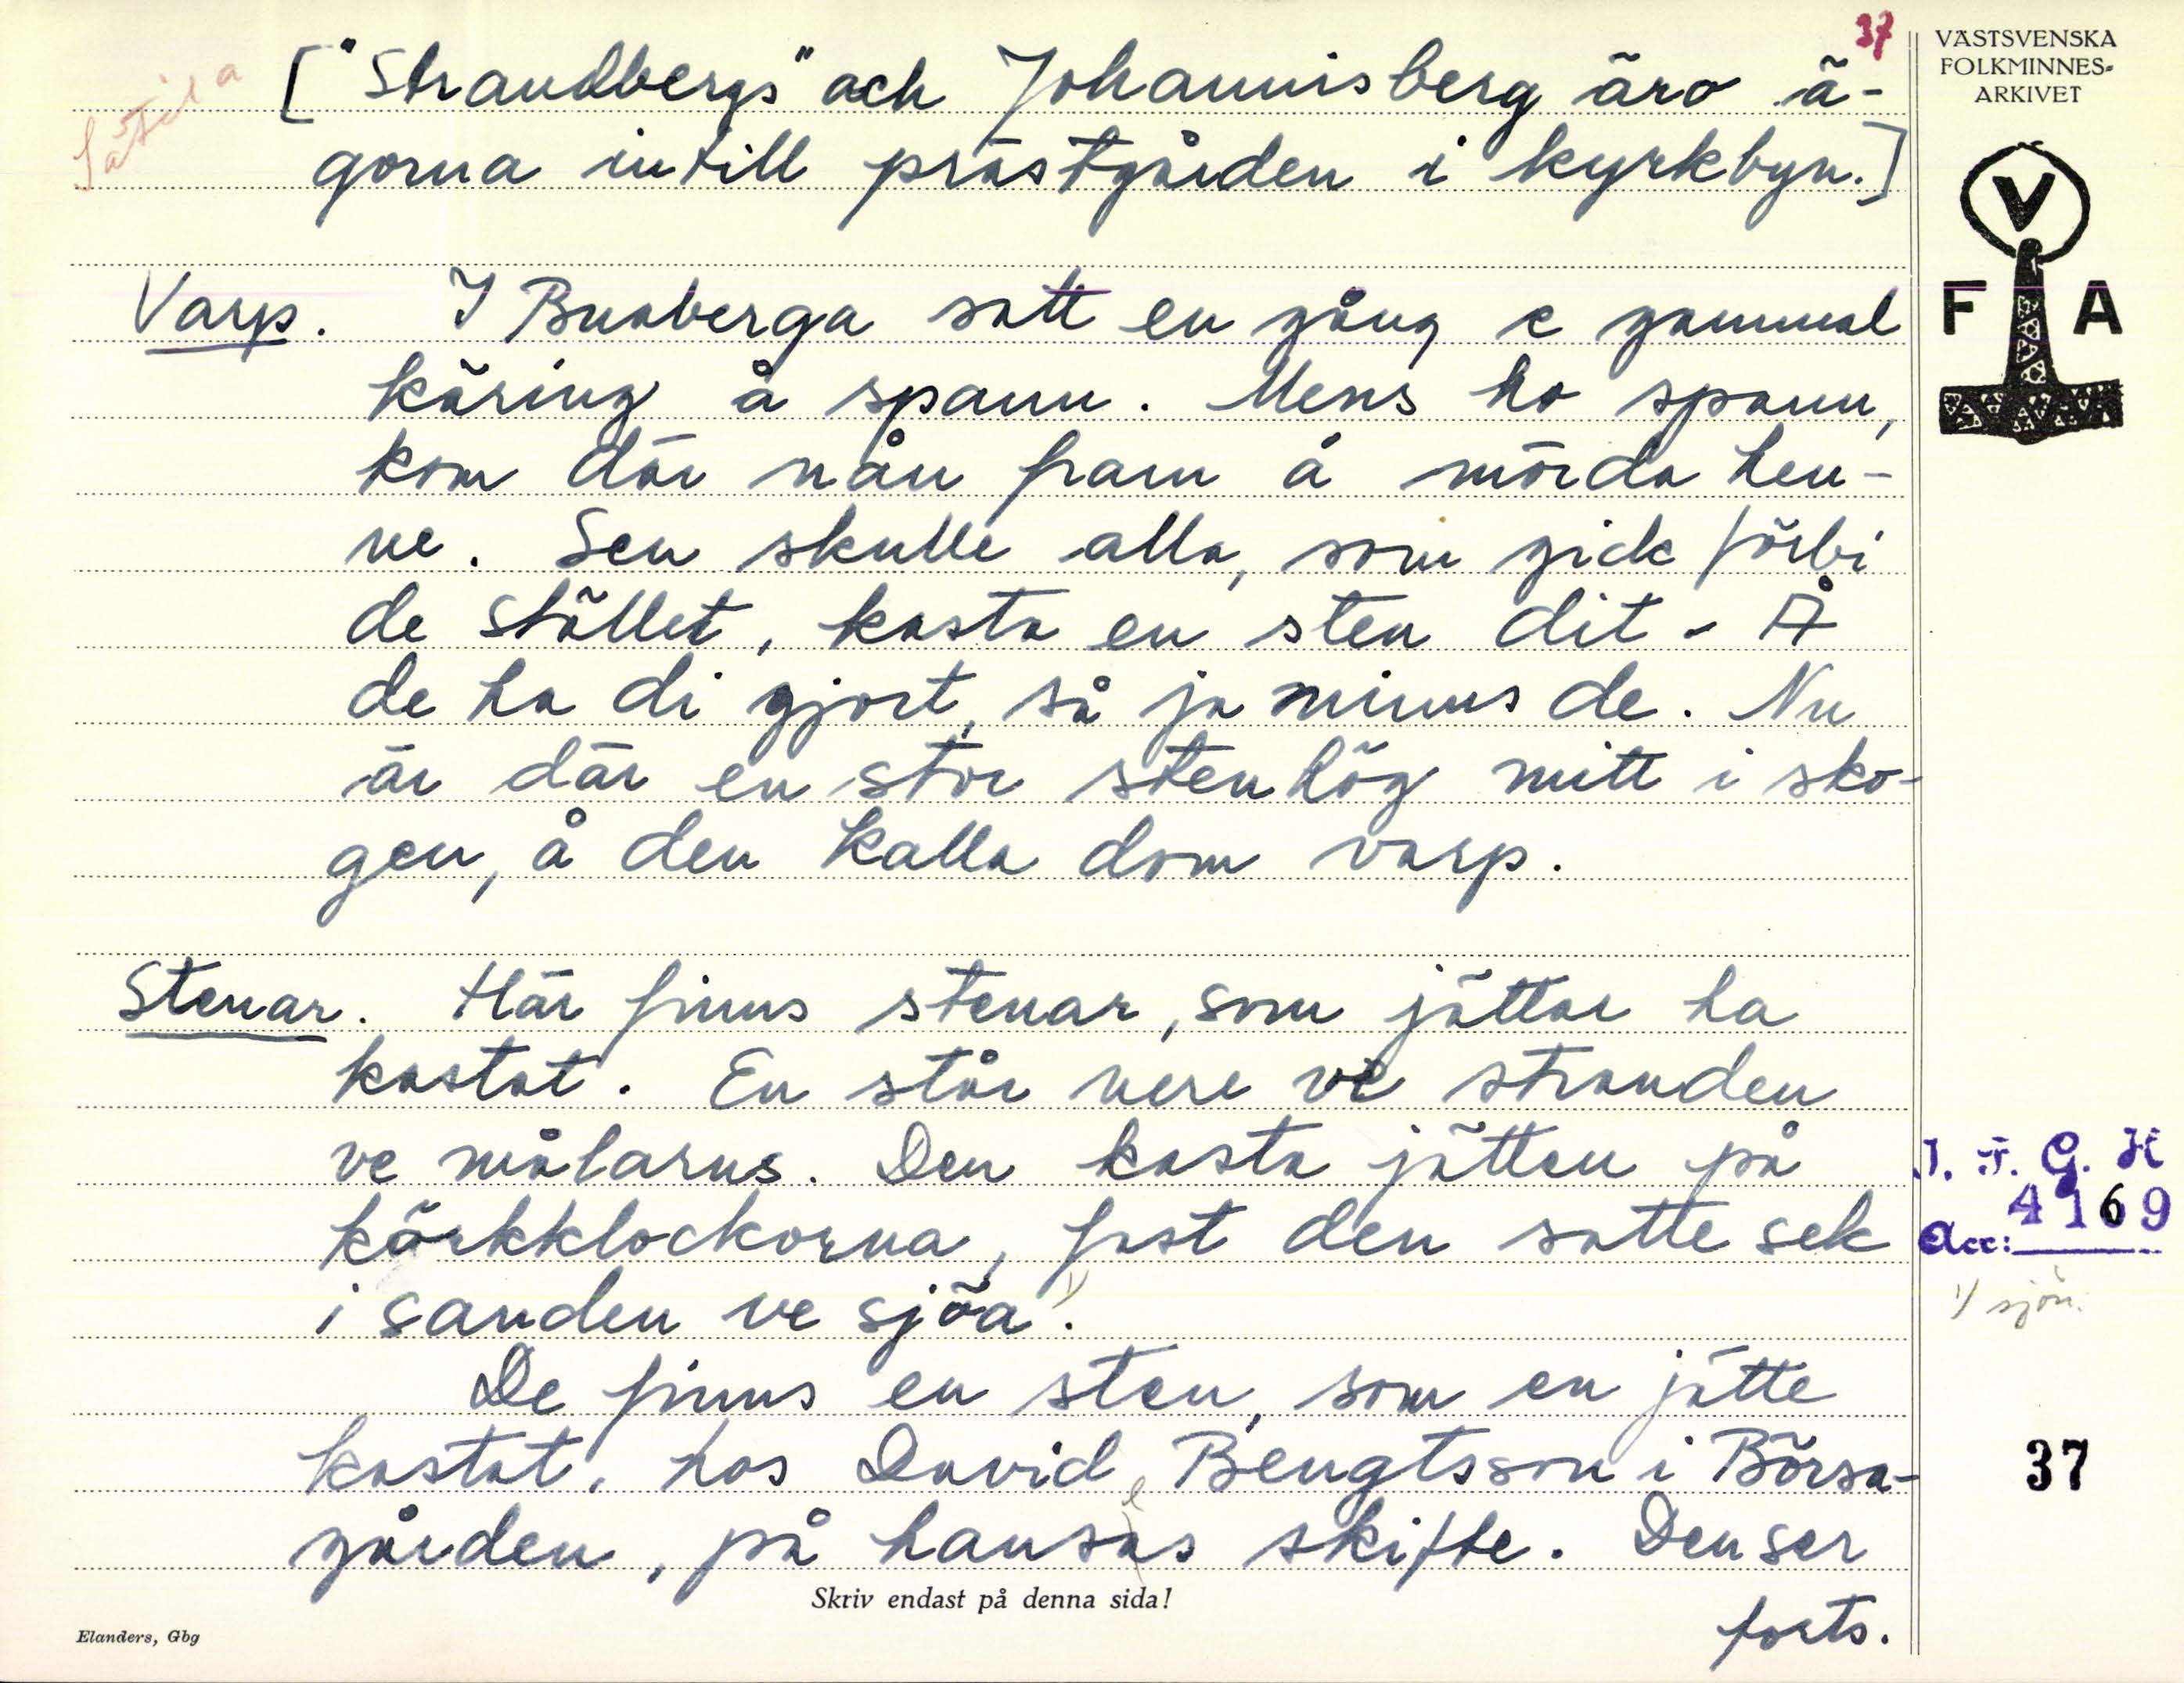 37
Sätila
["Strandbergs" och Johannisberg äro ä-
gorna intill prästgården i kyrkbyn.]
Varp. I Buaberga satt en gång e gammal
käring å spann. Mens ho spann,
kom där nån fram å mörda hen-
ne. Sen skulle alla, som gick förbi
de stället, kasta en sten dit - Å
de ha di gjort, så ja minns de. Nu
är där en stor stenhög mitt i sko-
gen, å den kalla dom varp.
Stenar. Här finns stenar, som jättar ha
kastat. En står nere ve stranden
ve målarns. Den kasta jätten på
körkklockorna, fast den satte sek
i sanden ve sjöa 1).
De finns en sten, som en jätte
kastat, hos David Bengtsson i Börsa-
gården, på hanses skifte. Den ser
forts.
Skriv endast på denna sida!
Elanders, Gbg
VÄSTSVENSKA
FOLKMINNES-
ARKIVET
V
F A
I. F. G. H
4169
Acc:
1) sjön.
37